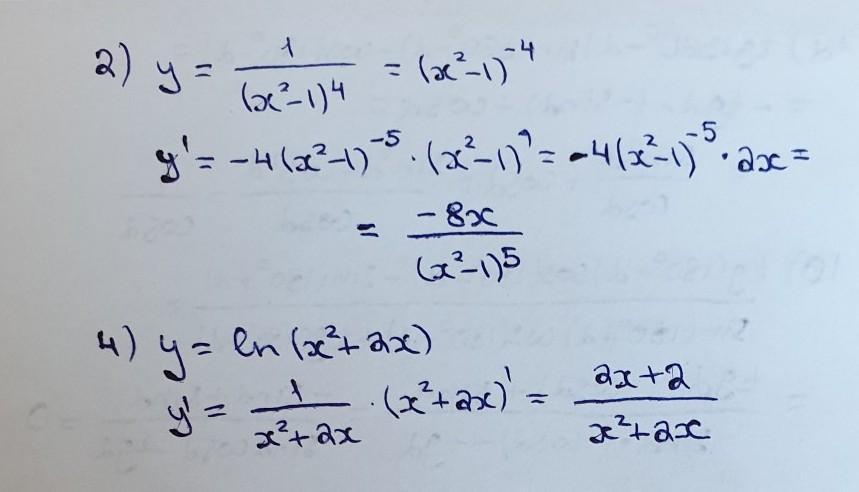 2) y = 1/(x²-1)⁴ = (x²-1)⁻⁴
y' = -4(x²-1)⁻⁵ · (x²-1)' = -4(x²-1)⁻⁵ · 2x =
= -8x/(x²-1)⁵
4) y = ln(x²+2x)
y' = 1/(x²+2x) · (x²+2x)' = (2x+2)/(x²+2x)